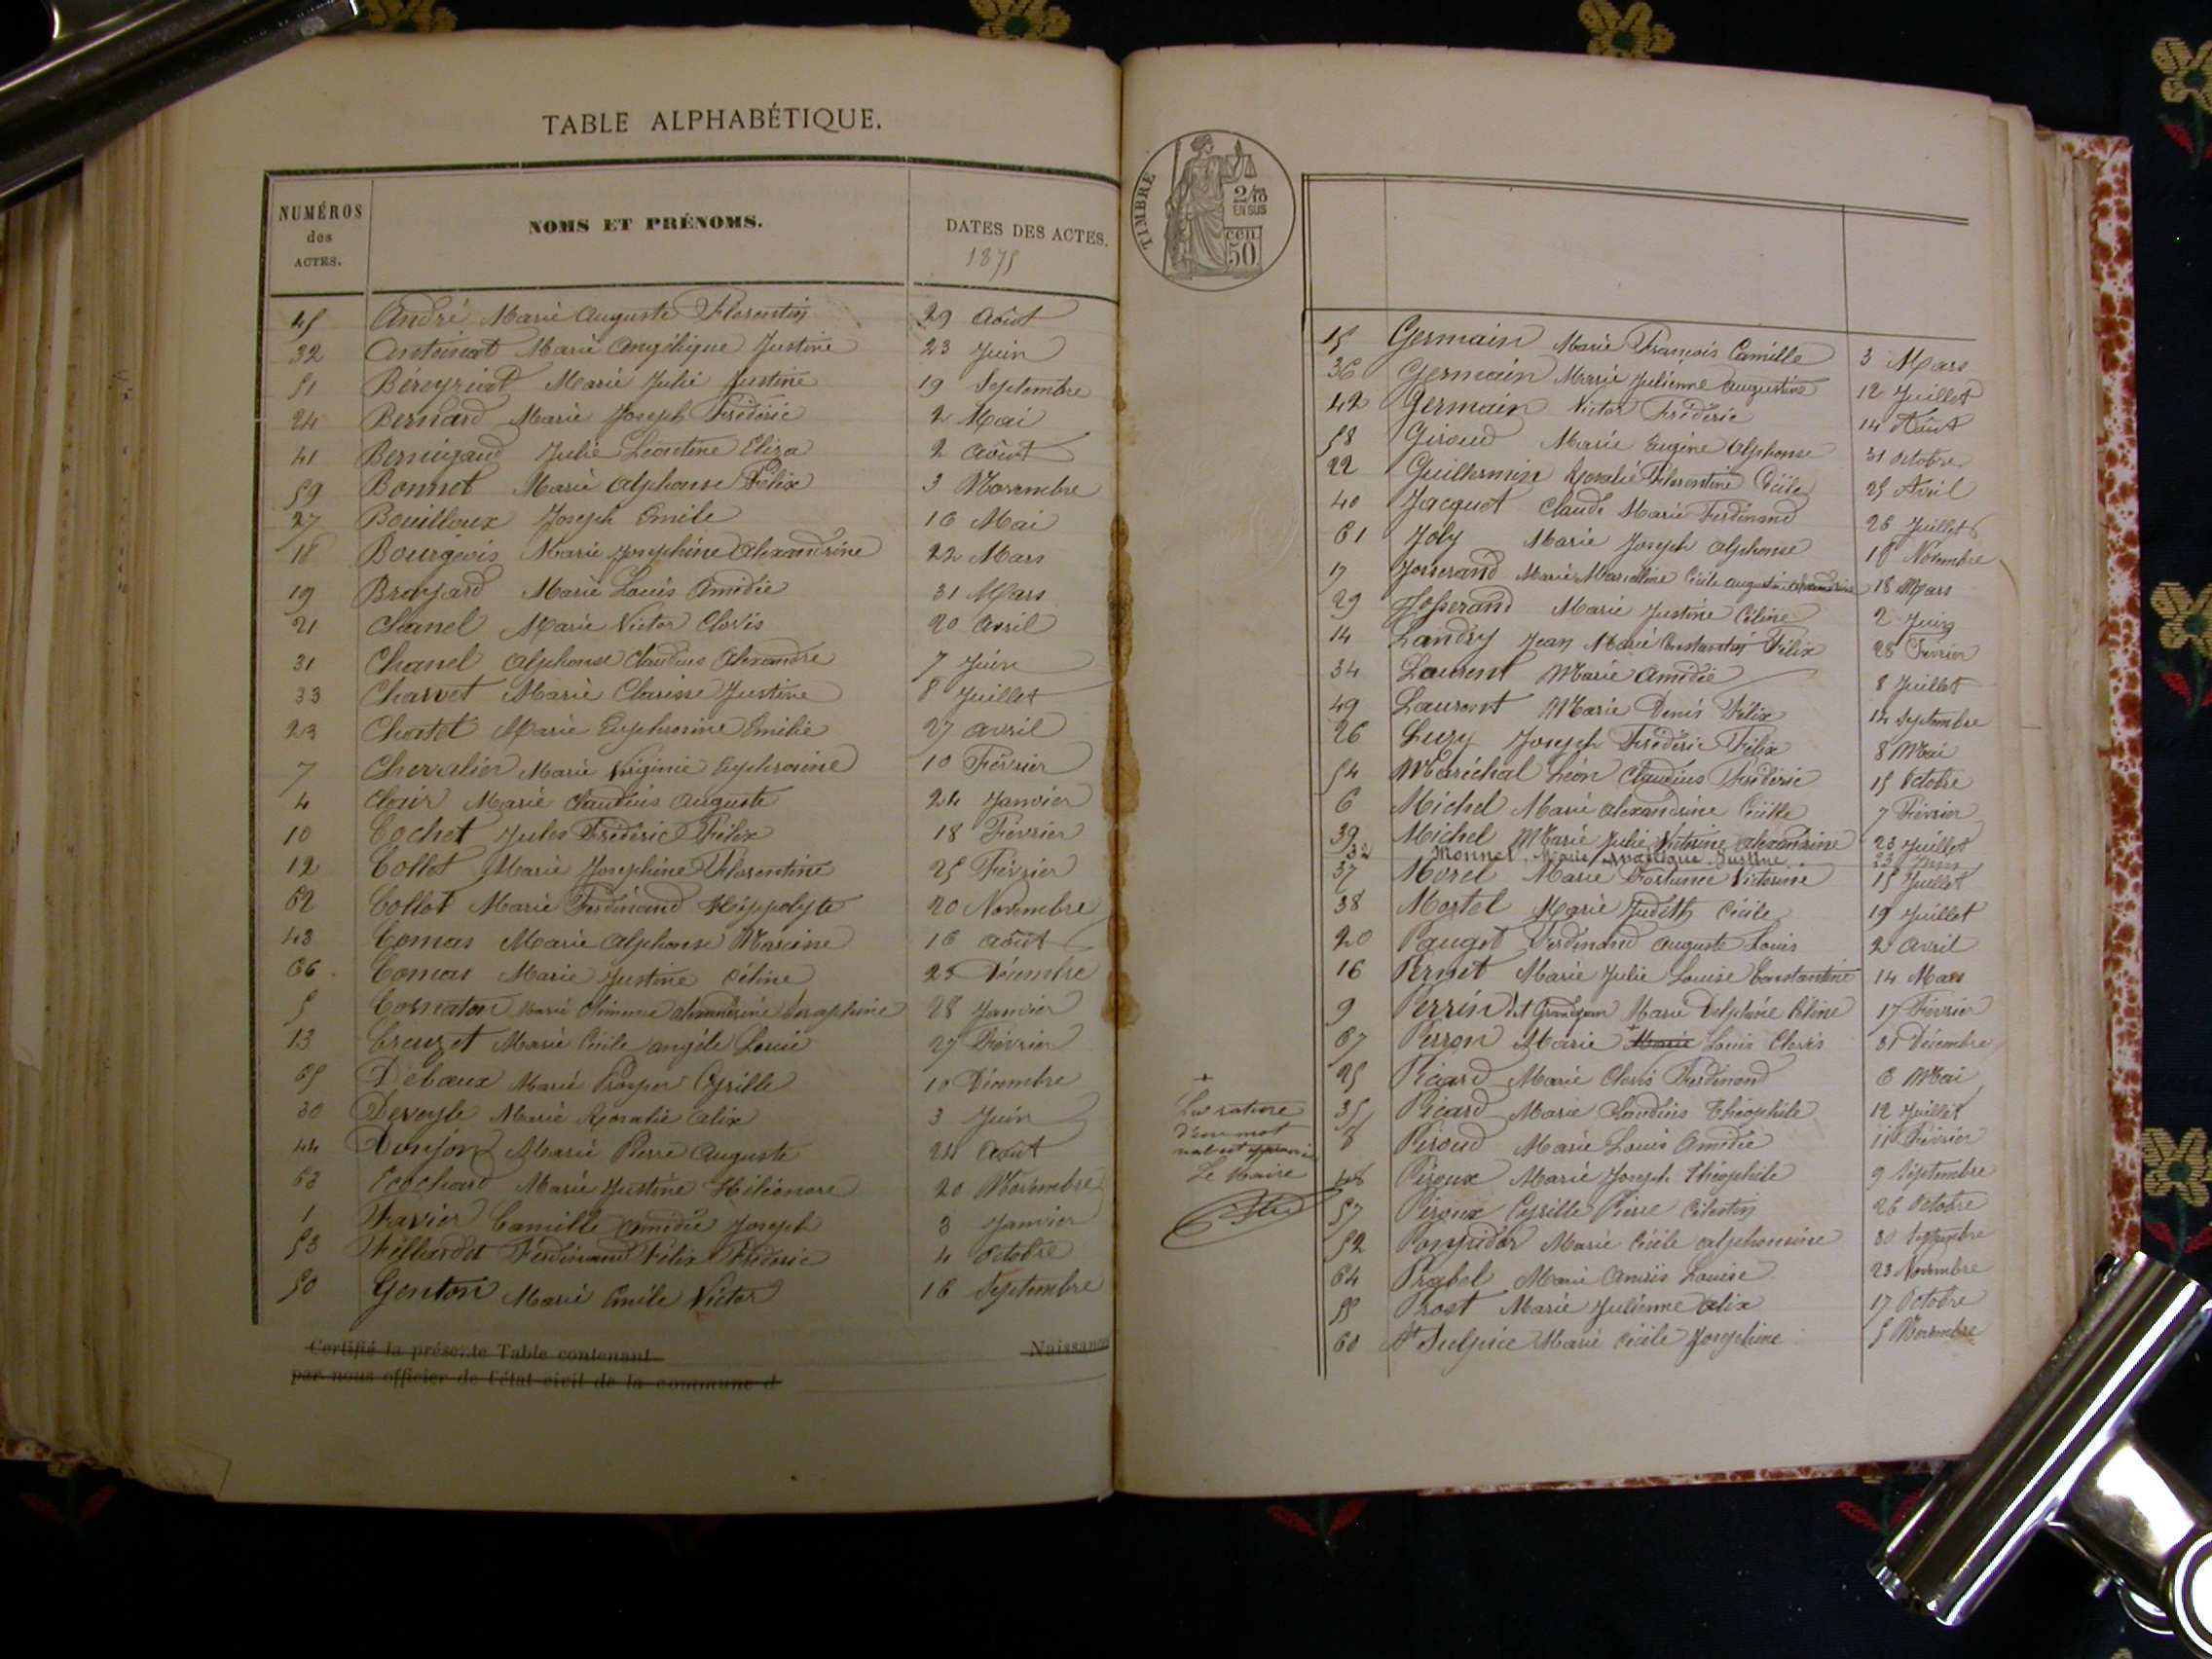 TABLE ALPHABÉTIQUE.
NUMÉROS des ACTES.
NOMS ET PRÉNOMS.
DATES DES ACTES.
1875
45 André Marie Auguste Florentin 29 Août
32 Antoinat Marie Angélique Justine 23 Juin
51 Béreyziat Marie Julie Justine 19 Septembre
24 Bernard Marie Joseph Frédéric 2 Mai
41 Bernigaud Julie Léontine Eliza 2 Août
59 Bonnet Marie Alphonse Félix 3 Novembre
27 Bouilloux Joseph Emile 16 Mai
18 Bourgeois Marie Joséphine Alexandrine 22 Mars
19 Brayard Marie Louis Amédée 31 Mars
21 Chanel Marie Victor Clovis 20 Avril
31 Chanel Alphonse Claudius Alexandre 7 Juin
33 Charvet Marie Clarisse Justine 8 Juillet
23 Chatet Marie Euphrosine Emilie 27 Avril
7 Chevalier Marie Virginie Euphrosine 10 Février
4 Clair Marie Claudius Auguste 24 Janvier
10 Cochet Jules Frédéric Félix 18 Février
12 Collet Marie Joséphine Florentine 25 Février
62 Collet Marie Ferdinand Hippolyte 20 Novembre
43 Comas Marie Alphonse Narcisse 16 Août
66 Comas Marie Justine Céline 25 Décembre
5 Cornaton Marie Alexandrine Séraphine 28 Janvier
13 Creuzet Marie Cécile Angèle Louise 27 Février
65 Debœux Marie Prosper Cyrille 10 Décembre
30 Devoyle Marie Rosalie Alix 3 Juin
44 Donjon Marie Pierre Auguste 24 Août
63 Ecochard Marie Justine Hiléonore 20 Novembre
1 Favier Camille Amédée Joseph 3 Janvier
53 Filliardet Ferdinand Félix Frédéric 4 Octobre
50 Genton Marie Emile Victor 16 Septembre
Certifié la présente Table contenant Naissance
par nous officier de l'état-civil de la commune d
TIMBRE
2/10 EN SUS
cen. 50
15 Germain Marie François Camille 3 Mars
36 Germain Marie Julienne Augustine 12 Juillet
42 Germain Victor Frédéric 14 Août
58 Giroud Marie Eugène Alphonse 31 Octobre
22 Guillermin Rosalie Florentine Cécile 25 Avril
40 Jacquet Claude Marie Ferdinand 26 Juillet
61 Joly Marie Joseph Alphonse 18 Novembre
17 Josserand Marie Marcelline Cécile Augustine Alexandrine 18 Mars
29 Josserand Marie Justine Céline 2 Juin
14 Landry Jean Marie Constantin Félix 28 Février
34 Laurent Marie Amédée 8 Juillet
49 Laurent Marie Denis Félix 14 Septembre
26 Luzy Joseph Frédéric Félix 8 Mai
54 Maréchal Léon Claudius Frédéric 15 Octobre
6 Michel Marie Alexandrine Cécile 7 Février
39 Michel Marie Julie Victorine Alexandrine 23 Juillet
32 Monnet Marie Angélique Justine 23 Juin
37 Morel Marie Fortunée Victorine 15 Juillet
38 Mortel Marie Judith Cécile 19 Juillet
20 Pauget Ferdinand Auguste Louis 2 Avril
16 Pernet Marie Julie Louise Constantine 14 Mars
9 Perrin dit Grandjean Marie Delphine Céline 17 Février
67 Perron Marie Marie Louis Clovis 31 Décembre
25 Picard Marie Clovis Ferdinand 6 Mai
35 Picard Marie Claudius Théophile 12 Juillet
8 Piroud Marie Louis Amédée 11 Février
48 Piroux Marie Joseph Théophile 9 Septembre
57 Piroux Cyrille Pierre Célestin 26 Octobre
52 Marie Cécile Alphonsine 30 Septembre
64 Prabel Marie Louise 23 Novembre
55 Prost Marie Julienne Alix 17 Octobre
60 St Sulpice Marie Cécile Joséphine 5 Novembre
+
La rature
d'un mot
nul est approuvée
Le Maire